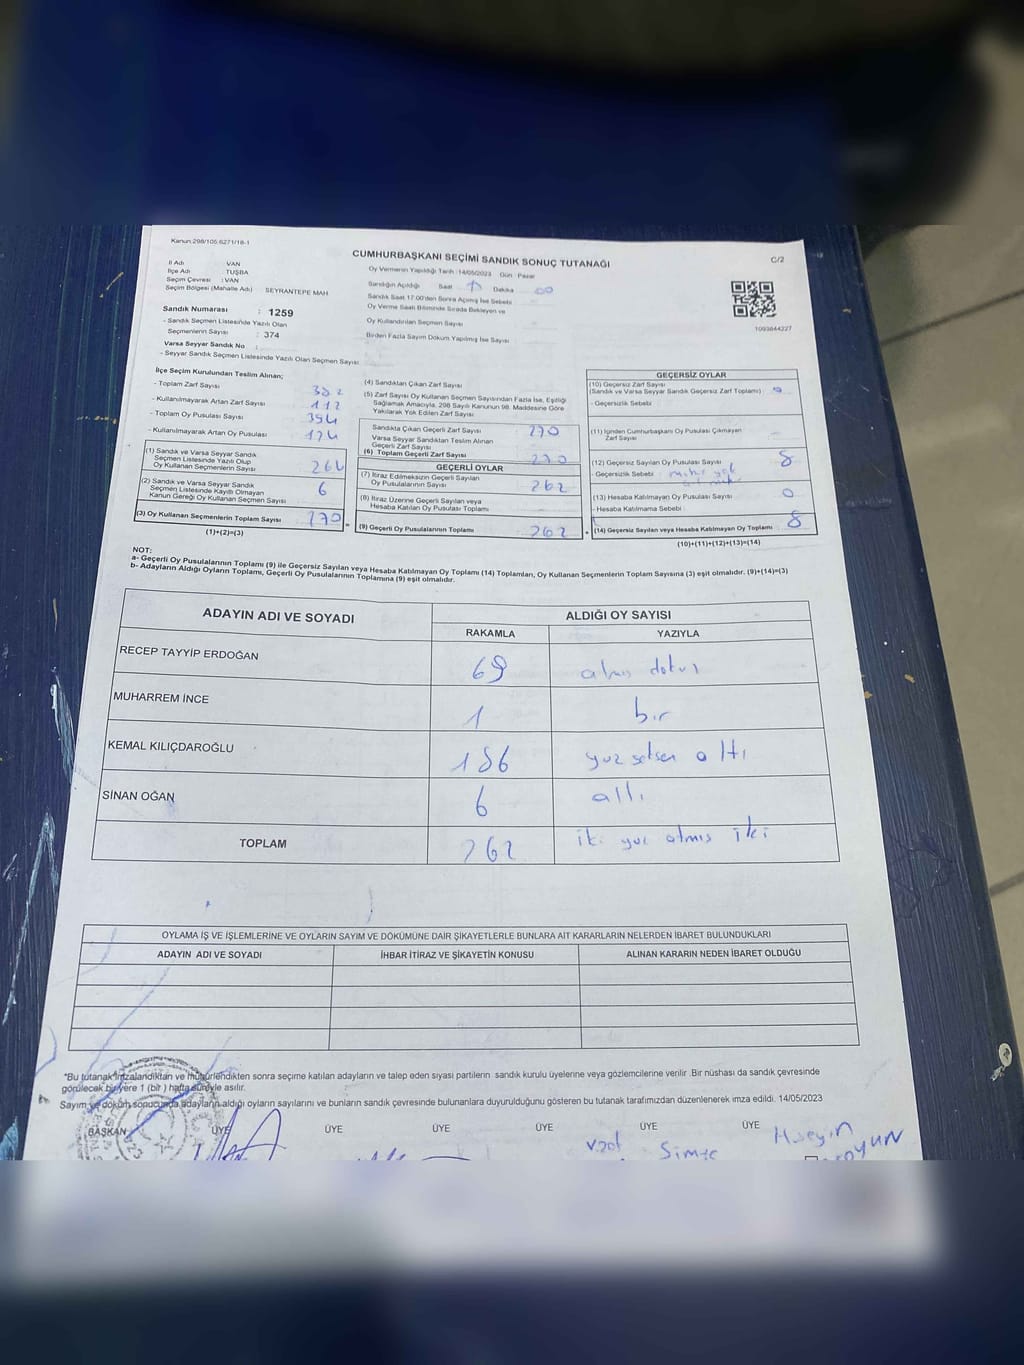 Kanun:298/105,6271/18-1
CUMHURBAŞKANI SEÇİMİ SANDIK SONUÇ TUTANAĞI
C/2
Oy Vermenin Yapıldığı Tarih :14/05/2023 Gün : Pazar
İl Adı VAN
İlçe Adı TUŞBA
Seçim Çevresi : VAN
Seçim Bölgesi (Mahalle Adı) SEYRANTEPE MAH
Sandığın Açıldığı Saat Dakika 00
Sandık Saat 17:00'den Sonra Açılmış İse Sebebi
Oy Verme Saati Bitiminde Sırada Bekleyen ve
Oy Kullandırılan Seçmen Sayısı
Birden Fazla Sayım Döküm Yapılmış İse Sayısı
1093844227
Sandık Numarası : 1259
- Sandık Seçmen Listesinde Yazılı Olan
Seçmenlerin Sayısı : 374
Varsa Seyyar Sandık No :
- Seyyar Sandık Seçmen Listesinde Yazılı Olan Seçmen Sayısı
İlçe Seçim Kurulundan Teslim Alınan;
- Toplam Zarf Sayısı 382
- Kullanılmayarak Artan Zarf Sayısı 112
- Toplam Oy Pusulası Sayısı 394
- Kullanılmayarak Artan Oy Pusulası 124
(1) Sandık ve Varsa Seyyar Sandık
Seçmen Listesinde Yazılı Olup
Oy Kullanan Seçmenlerin Sayısı 264
(2) Sandık ve Varsa Seyyar Sandık
Seçmen Listesinde Kayıtlı Olmayan
Kanun Gereği Oy Kullanan Seçmen Sayısı 6
(3) Oy Kullanan Seçmenlerin Toplam Sayısı 270
(1)+(2)=(3)
(4) Sandıktan Çıkan Zarf Sayısı
(5) Zarf Sayısı Oy Kullanan Seçmen Sayısından Fazla İse, Eşitliği
Sağlamak Amacıyla, 298 Sayılı Kanunun 98. Maddesine Göre
Yakılarak Yok Edilen Zarf Sayısı
Sandıkta Çıkan Geçerli Zarf Sayısı 270
Varsa Seyyar Sandıktan Teslim Alınan
Geçerli Zarf Sayısı
(6) Toplam Geçerli Zarf Sayısı 270
GEÇERLİ OYLAR
(7) İtiraz Edilmeksizin Geçerli Sayılan
Oy Pusulalarının Sayısı 262
(8) İtiraz Üzerine Geçerli Sayılan veya
Hesaba Katılan Oy Pusulası Toplamı
(9) Geçerli Oy Pusulalarının Toplamı 262
GEÇERSİZ OYLAR
(10) Geçersiz Zarf Sayısı
(Sandık ve Varsa Seyyar Sandık Geçersiz Zarf Toplamı)
- Geçersizlik Sebebi
(11) İçinden Cumhurbaşkanı Oy Pusulası Çıkmayan
Zarf Sayısı
(12) Geçersiz Sayılan Oy Pusulası Sayısı 8
- Geçersizlik Sebebi
(13) Hesaba Katılmayan Oy Pusulası Sayısı 0
- Hesaba Katılmama Sebebi
+ (14) Geçersiz Sayılan veya Hesaba Katılmayan Oy Toplamı 8
(10)+(11)+(12)+(13)=(14)
NOT:
a- Geçerli Oy Pusulalarının Toplamı (9) ile Geçersiz Sayılan veya Hesaba Katılmayan Oy Toplamı (14) Toplamları, Oy Kullanan Seçmenlerin Toplam Sayısına (3) eşit olmalıdır. (9)+(14)=(3)
b- Adayların Aldığı Oyların Toplamı, Geçerli Oy Pusulalarının Toplamına (9) eşit olmalıdır.
ADAYIN ADI VE SOYADI ALDIĞI OY SAYISI
RAKAMLA YAZIYLA
RECEP TAYYİP ERDOĞAN 69 atmış dokuz
MUHARREM İNCE 1 bir
KEMAL KILIÇDAROĞLU 186 yüz seksen altı
SİNAN OĞAN 6 altı
TOPLAM 262 iki yüz atmış iki
OYLAMA İŞ VE İŞLEMLERİNE VE OYLARIN SAYIM VE DÖKÜMÜNE DAİR ŞİKAYETLERLE BUNLARA AİT KARARLARIN NELERDEN İBARET BULUNDUKLARI
ADAYIN ADI VE SOYADI İHBAR İTİRAZ VE ŞİKAYETİN KONUSU ALINAN KARARIN NEDEN İBARET OLDUĞU
*Bu tutanak imzalandıktan ve mühürlendikten sonra seçime katılan adayların ve talep eden siyasi partilerin sandık kurulu üyelerine veya gözlemcilerine verilir .Bir nüshası da sandık çevresinde
görülecek bir yere 1 (bir ) hafta süreyle asılır.
Sayım ve döküm sonucunda adayların aldığı oyların sayılarını ve bunların sandık çevresinde bulunanlara duyurulduğunu gösteren bu tutanak tarafımızdan düzenlenerek imza edildi. 14/05/2023
BAŞKAN ÜYE ÜYE ÜYE ÜYE ÜYE ÜYE
Hüseyin